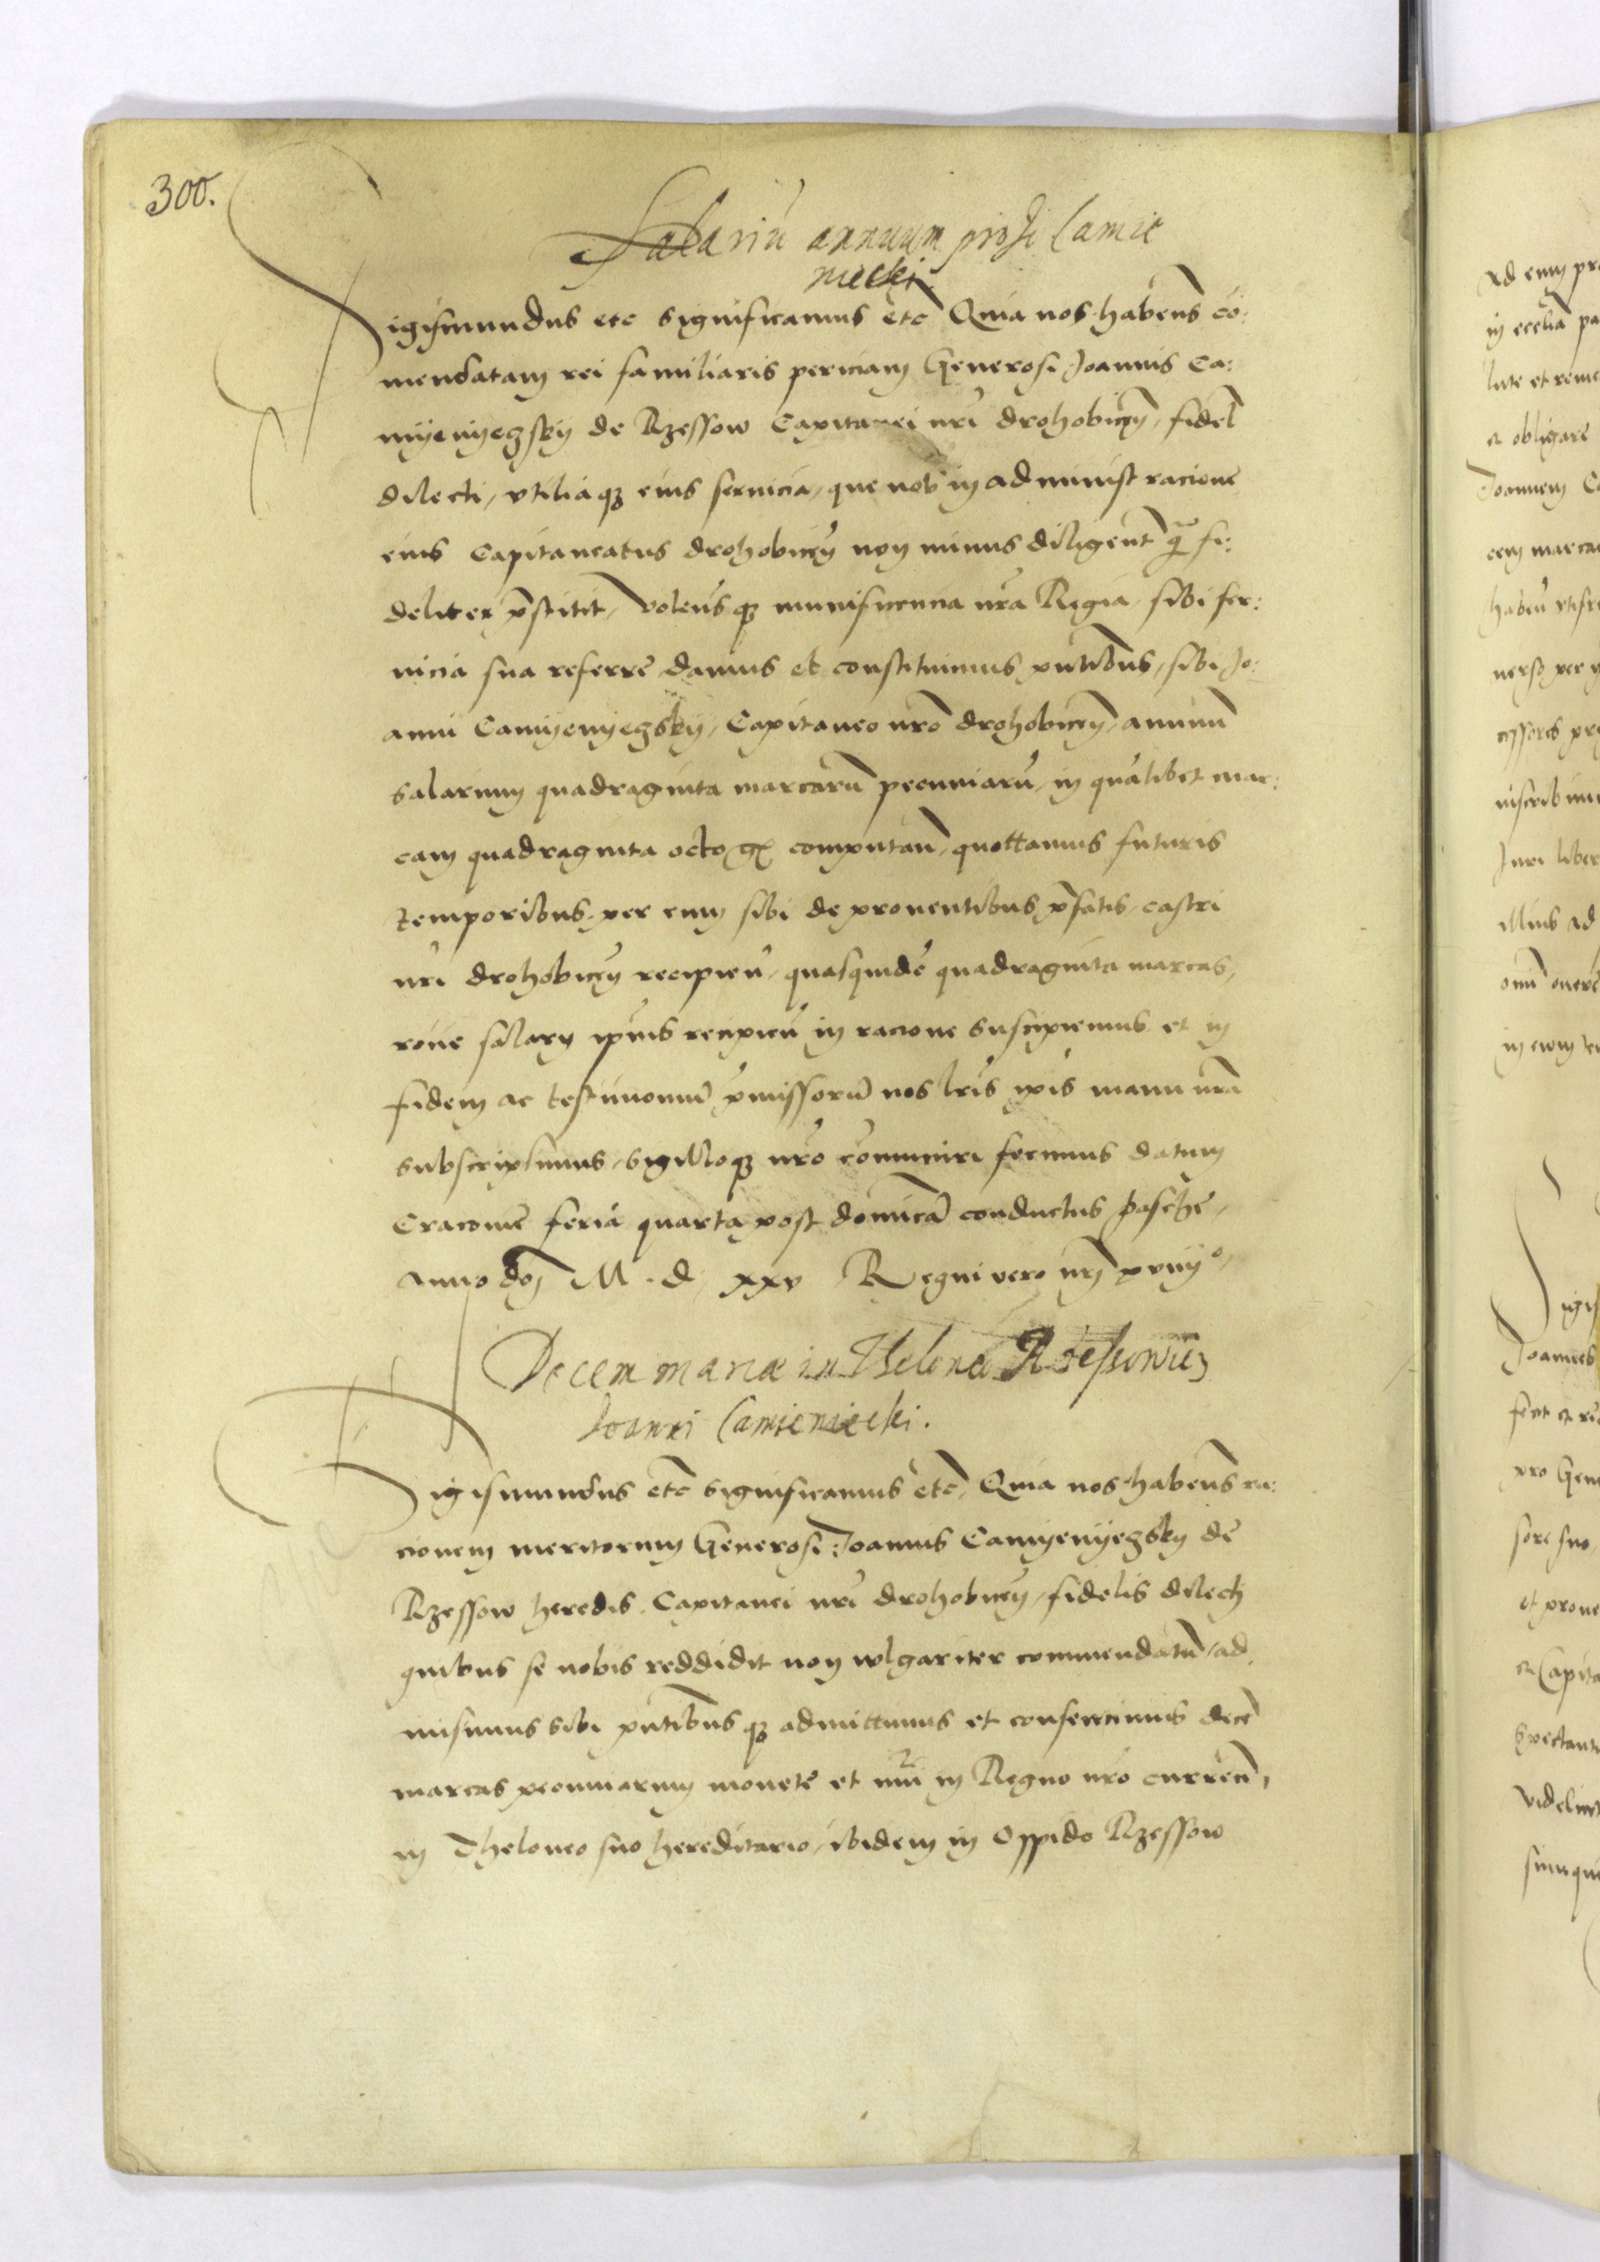 300.
Salariu annuum pro Jo Camie
niecki.
Sigismundus etc significamus etc Quia nos habens co:
mendatam rei familiaris periciam Generosi Joannis Ca:
myenyegsky de Rzessow Capitanei nri drohobicen, fidel
dilecti, vtiliaqz eius seruicia, que nob in administracione
eius Capitaneatus drohobicen non minus diligent qm fi:
deliter pstitit, volensqz munificencia nra Regia sibi ser:
uicia sua referre damus et constituimus pntibus, sibi Jo:
anni Camyenyegsky, Capitaneo nro drohobicen, annuu
salarium quadraginta marcaru pecuniaru, in qualibet mar:
cam quadraginta octo gr computan, quottannis futuris
temporibus per eum sibi de prouentibus pfatis castri
nri drohobicen recipien, quasquide quadraginta marcas,
rone salary ipius recipien in racione suscipiemus et in
fidem ac testimoniu pmissoru nos lris ipis manu nra
subscripsimus, sigilloqz nro comuniri fecimus datum
Cracouie feria quarta post dominica conductus pasche,
Anno doni M . d , xxv Regni vero nri xviiij°,
Decem marcæ in Theloneo Rzessowien
Joanni Camieniecki.
Sigismundus etc significamus etc, Quia nos habens ra:
cionem meritorum Generosi Joannis Camyenyegsky de
Rzessow heredis Capitanei nri drohobicen, fidelis dilecti
quibus se nobis reddidit non wlgariter commendatu, ad:
misimus sibi pntibusqz admittimus et consentimus dece
marcas pecuniarum monete et nui in Regno nro curren,
in Theloneo suo hereditario, ibidem in Oppido Rzessow